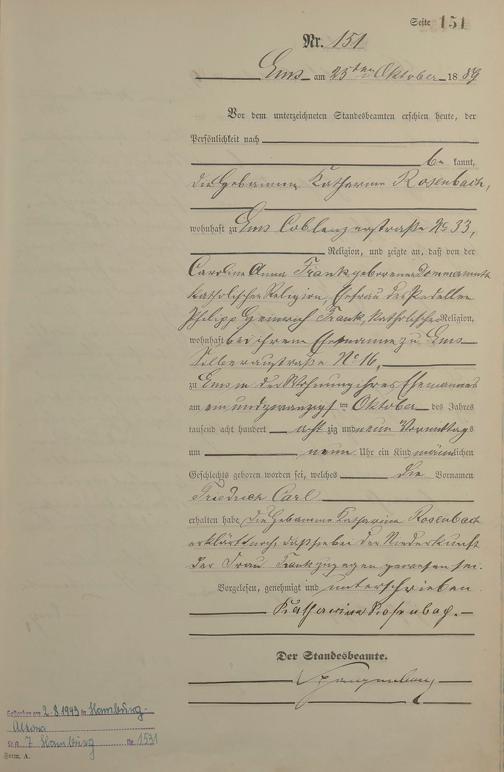 Seite 151
Nr. 151
Ems am 25ten Oktober 1889
Vor dem unterzeichneten Standesbeamten erschien heute, der
Persönlichkeit nach
be kannt,
die Hebamme Katharina Rosenbach,
wohnhaft zu Ems Coblenzerstraße No 33,
Religion, und zeigte an, daß von der
Caroline Anna Frank geborenen
katholischer Religion, Ehefrau des Pedellen
Philipp Heinrich Frank, katholischer Religion,
wohnhaft bei ihrem Ehemanne zu Ems
Silberaustraße No 16,
zu Ems in der Wohnung ihres Ehemannes
am einundzwanzigsten Oktober des Jahres
tausend acht hundert acht zig und neun Vormittags
um neun Uhr ein Kind männlichen
Geschlechts geboren worden sei, welches die Vornamen
Friedrich Carl
erhalten habe. Die Hebamme Katharina Rosenbach
erklärte noch, daß sie bei der Niederkunft
der Frau Frank zugegen gewesen sei.
Vorgelesen, genehmigt und unterschrieben
Katharina Rosenbach.
Der Standesbeamte.
Gestorben am 2.8.1943 in Hamburg-
Altona
St. A. 7 Hamburg Nr. 1531
Form. A.